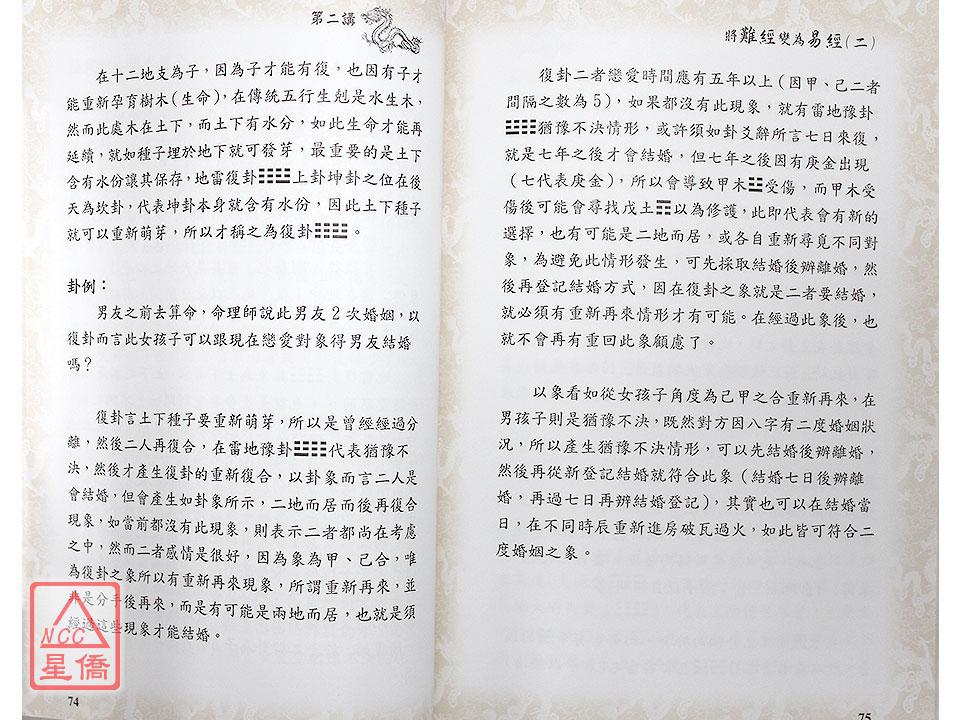 第二講
在十二地支為子，因為子才能有復，也因有子才
能重新孕育樹木（生命），在傳統五行生剋是水生木，
然而此處木在土下，而土下有水分，如此生命才能再
延續，就如種子埋於地下就可發芽，最重要的是土下
含有水份讓其保存，地雷復卦上卦坤卦之位在後
天為坎卦，代表坤卦本身就含有水份，因此土下種子
就可以重新萌芽，所以才稱之為復卦。
卦例：
男友之前去算命，命理師說此男友2次婚姻，以
復卦而言此女孩子可以跟現在戀愛對象得男友結婚
嗎？
復卦言土下種子要重新萌芽，所以是曾經經過分
離，然後二人再復合，在雷地豫卦代表猶豫不
決，然後才產生復卦的重新復合，以卦象而言二人是
會結婚，但會產生如卦象所示，二地而居而後再復合
現象，如當前都沒有此現象，則表示二者都尚在考慮
之中，然而二者感情是很好，因為象為甲、己合，唯
為復卦之象所以有重新再來現象，所謂重新再來，並
非是分手後再來，而是有可能是兩地而居，也就是須
經過這些現象才能結婚。
NCC
星僑
74
將難經變為易經（二）
復卦二者戀愛時間應有五年以上（因甲、己二者
間隔之數為5），如果都沒有此現象，就有雷地豫卦
猶豫不決情形，或許須如卦爻辭所言七日來復，
就是七年之後才會結婚，但七年之後因有庚金出現
（七代表庚金），所以會導致甲木受傷，而甲木受
傷後可能會尋找戊土以為修護，此即代表會有新的
選擇，也有可能是二地而居，或各自重新尋覓不同對
象，為避免此情形發生，可先採取結婚後辦離婚，然
後再登記結婚方式，因在復卦之象就是二者要結婚，
就必須有重新再來情形才有可能。在經過此象後，也
就不會再有重回此象顧慮了。
以象看如從女孩子角度為己甲之合重新再來，在
男孩子則是猶豫不決，既然對方因八字有二度婚姻狀
況，所以產生猶豫不決情形，可以先結婚後辦離婚，
然後再從新登記結婚就符合此象（結婚七日後辦離
婚，再過七日再辦結婚登記），其實也可以在結婚當
日，在不同時辰重新進房破瓦過火，如此皆可符合二
度婚姻之象。
75